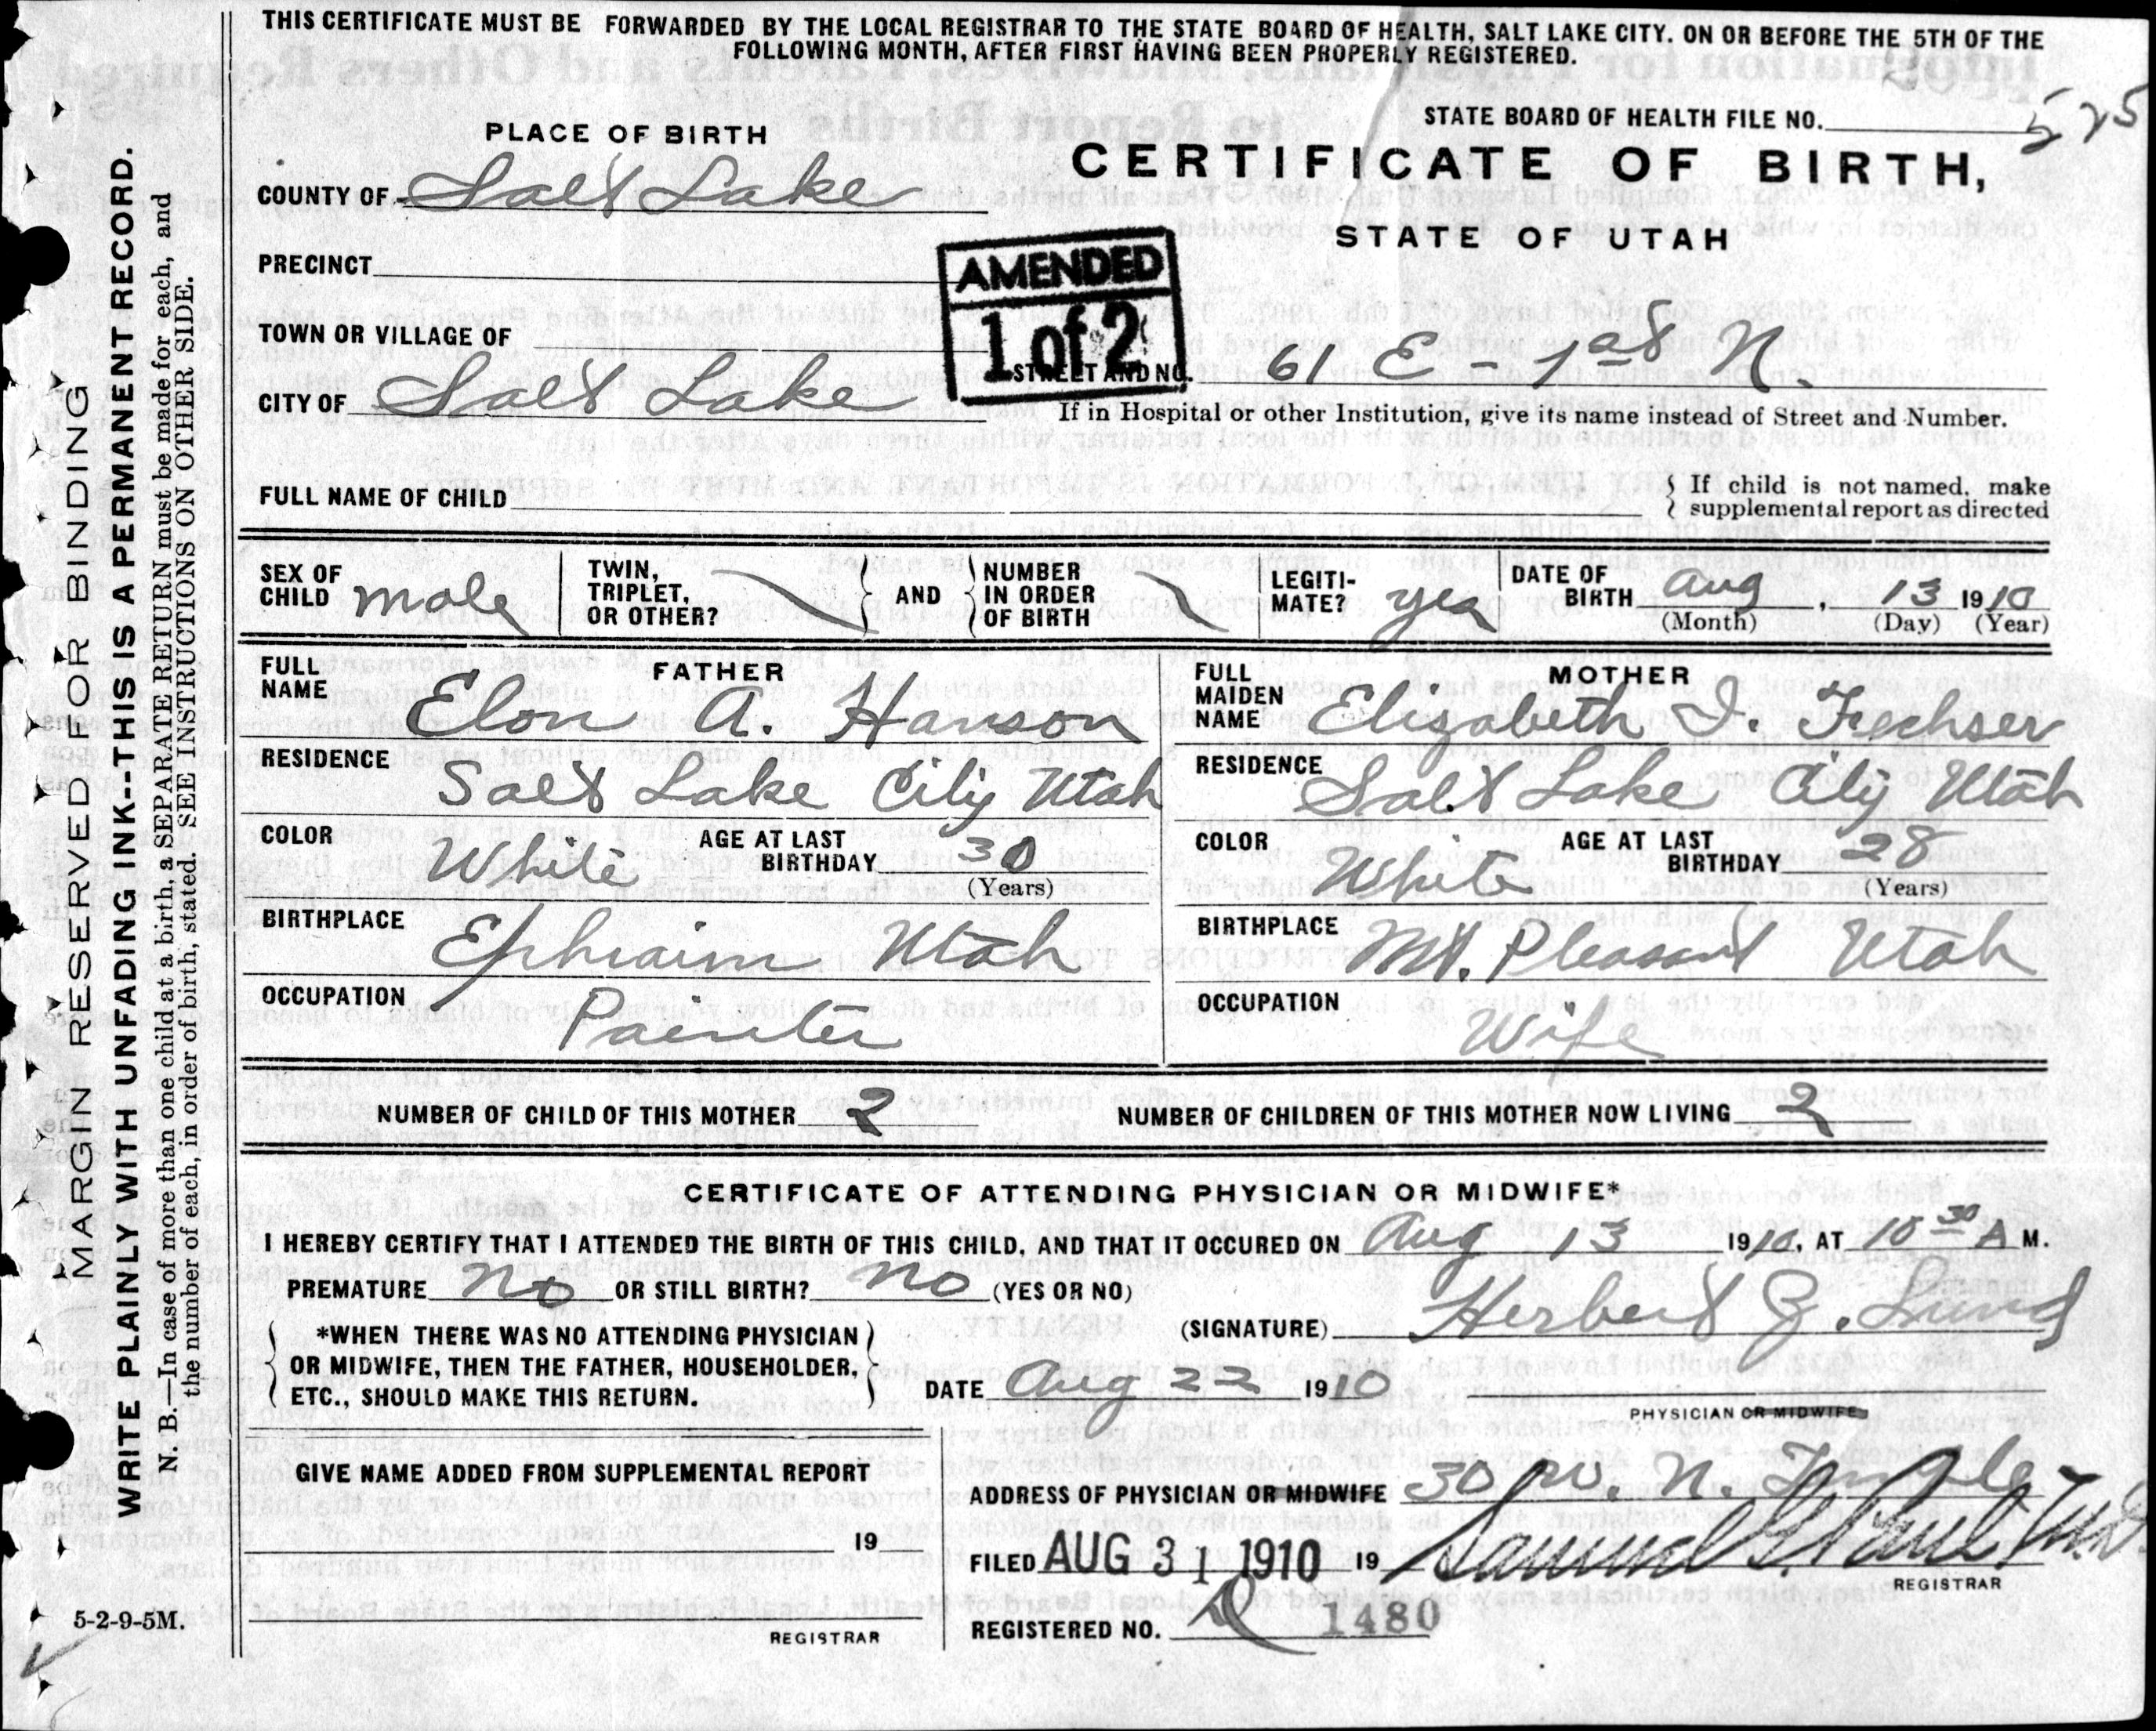 THIS CERTIFICATE MUST BE FORWARDED BY THE LOCAL REGISTRAR TO THE STATE BOARD OF HEALTH, SALT LAKE CITY. ON OR BEFORE THE 5TH OF THE
FOLLOWING MONTH, AFTER FIRST HAVING BEEN PROPERLY REGISTERED.
STATE BOARD OF HEALTH FILE NO. 525
PLACE OF BIRTH
CERTIFICATE OF BIRTH,
COUNTY OF Salt Lake
STATE OF UTAH
PRECINCT
AMENDED
1 of 2
TOWN OR VILLAGE OF
STREET AND NO. 61 E - 1st N.
CITY OF Salt Lake
If in Hospital or other Institution, give its name instead of Street and Number.
FULL NAME OF CHILD
If child is not named, make
supplemental report as directed
SEX OF CHILD male
TWIN, TRIPLET, OR OTHER?
AND
NUMBER IN ORDER OF BIRTH
LEGITIMATE? yes
DATE OF BIRTH Aug, 13 1910
(Month) (Day) (Year)
FATHER
FULL NAME Elon A. Hanson
RESIDENCE Salt Lake City Utah
COLOR White AGE AT LAST BIRTHDAY 30
(Years)
BIRTHPLACE Ephraim Utah
OCCUPATION Painter
MOTHER
FULL MAIDEN NAME Elizabeth I. Fechser
RESIDENCE Salt Lake City Utah
COLOR White AGE AT LAST BIRTHDAY 28
(Years)
BIRTHPLACE Mt. Pleasant Utah
OCCUPATION Wife
NUMBER OF CHILD OF THIS MOTHER 2 NUMBER OF CHILDREN OF THIS MOTHER NOW LIVING 2
CERTIFICATE OF ATTENDING PHYSICIAN OR MIDWIFE*
I HEREBY CERTIFY THAT I ATTENDED THE BIRTH OF THIS CHILD, AND THAT IT OCCURED ON Aug 13 1910, AT 10 30 A M.
PREMATURE No OR STILL BIRTH? No (YES OR NO)
*WHEN THERE WAS NO ATTENDING PHYSICIAN
OR MIDWIFE, THEN THE FATHER, HOUSEHOLDER,
ETC., SHOULD MAKE THIS RETURN.
(SIGNATURE) Herbert Z. Lund
DATE Aug 22 1910
PHYSICIAN OR MIDWIFE
GIVE NAME ADDED FROM SUPPLEMENTAL REPORT
19
REGISTRAR
ADDRESS OF PHYSICIAN OR MIDWIFE 30 W. N. Temple
FILED AUG 31 1910 19 Samuel G. Paul M.D.
REGISTRAR
REGISTERED NO. 1480
MARGIN RESERVED FOR BINDING
WRITE PLAINLY WITH UNFADING INK--THIS IS A PERMANENT RECORD.
N. B.—In case of more than one child at a birth, a SEPARATE RETURN must be made for each, and
the number of each, in order of birth, stated. SEE INSTRUCTIONS ON OTHER SIDE.
5-2-9-5M.